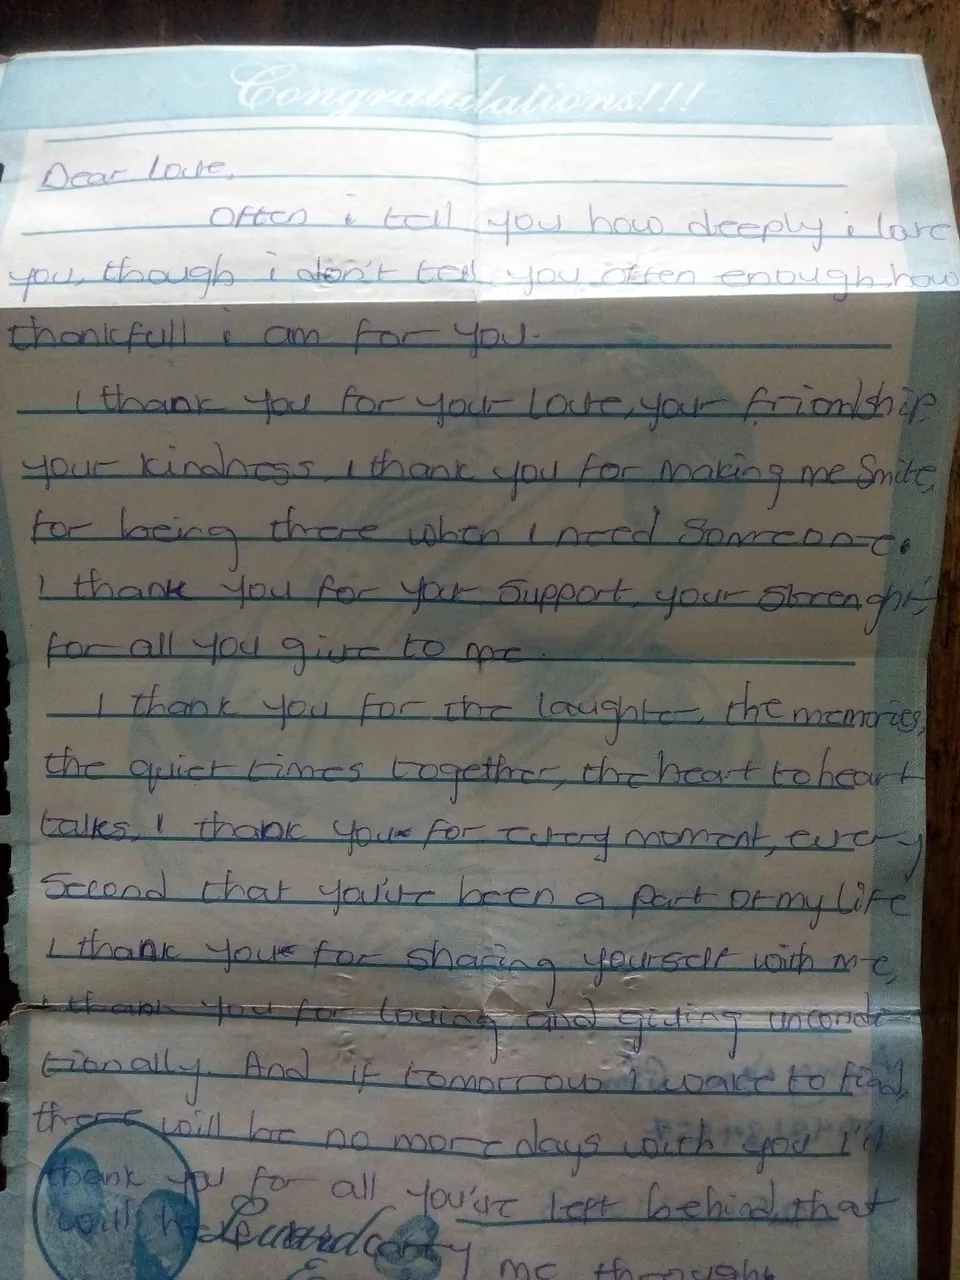 Congratulations!!!
Dear love,
Often i tell you how deeply i love
you, though i don't tell you often enough, how
thankfull i am for you.
I thank you for your love, your friendship
your kindness, I thank you for making me smile,
for being there when I need someone.
I thank you for your support, your strenght,
for all you give to me.
I thank you for the laughter, the memories,
the quiet times together, the heart to heart
talks, I thank you for every moment, every
second that you've been a part of my life
I thank you for sharing yourself with me,
I thank you for loving and giving uncondi
tionally. And if tomorrow I wake to find,
there will be no more days with you I'll
thank you for all you've left behind, that
will help carry me through